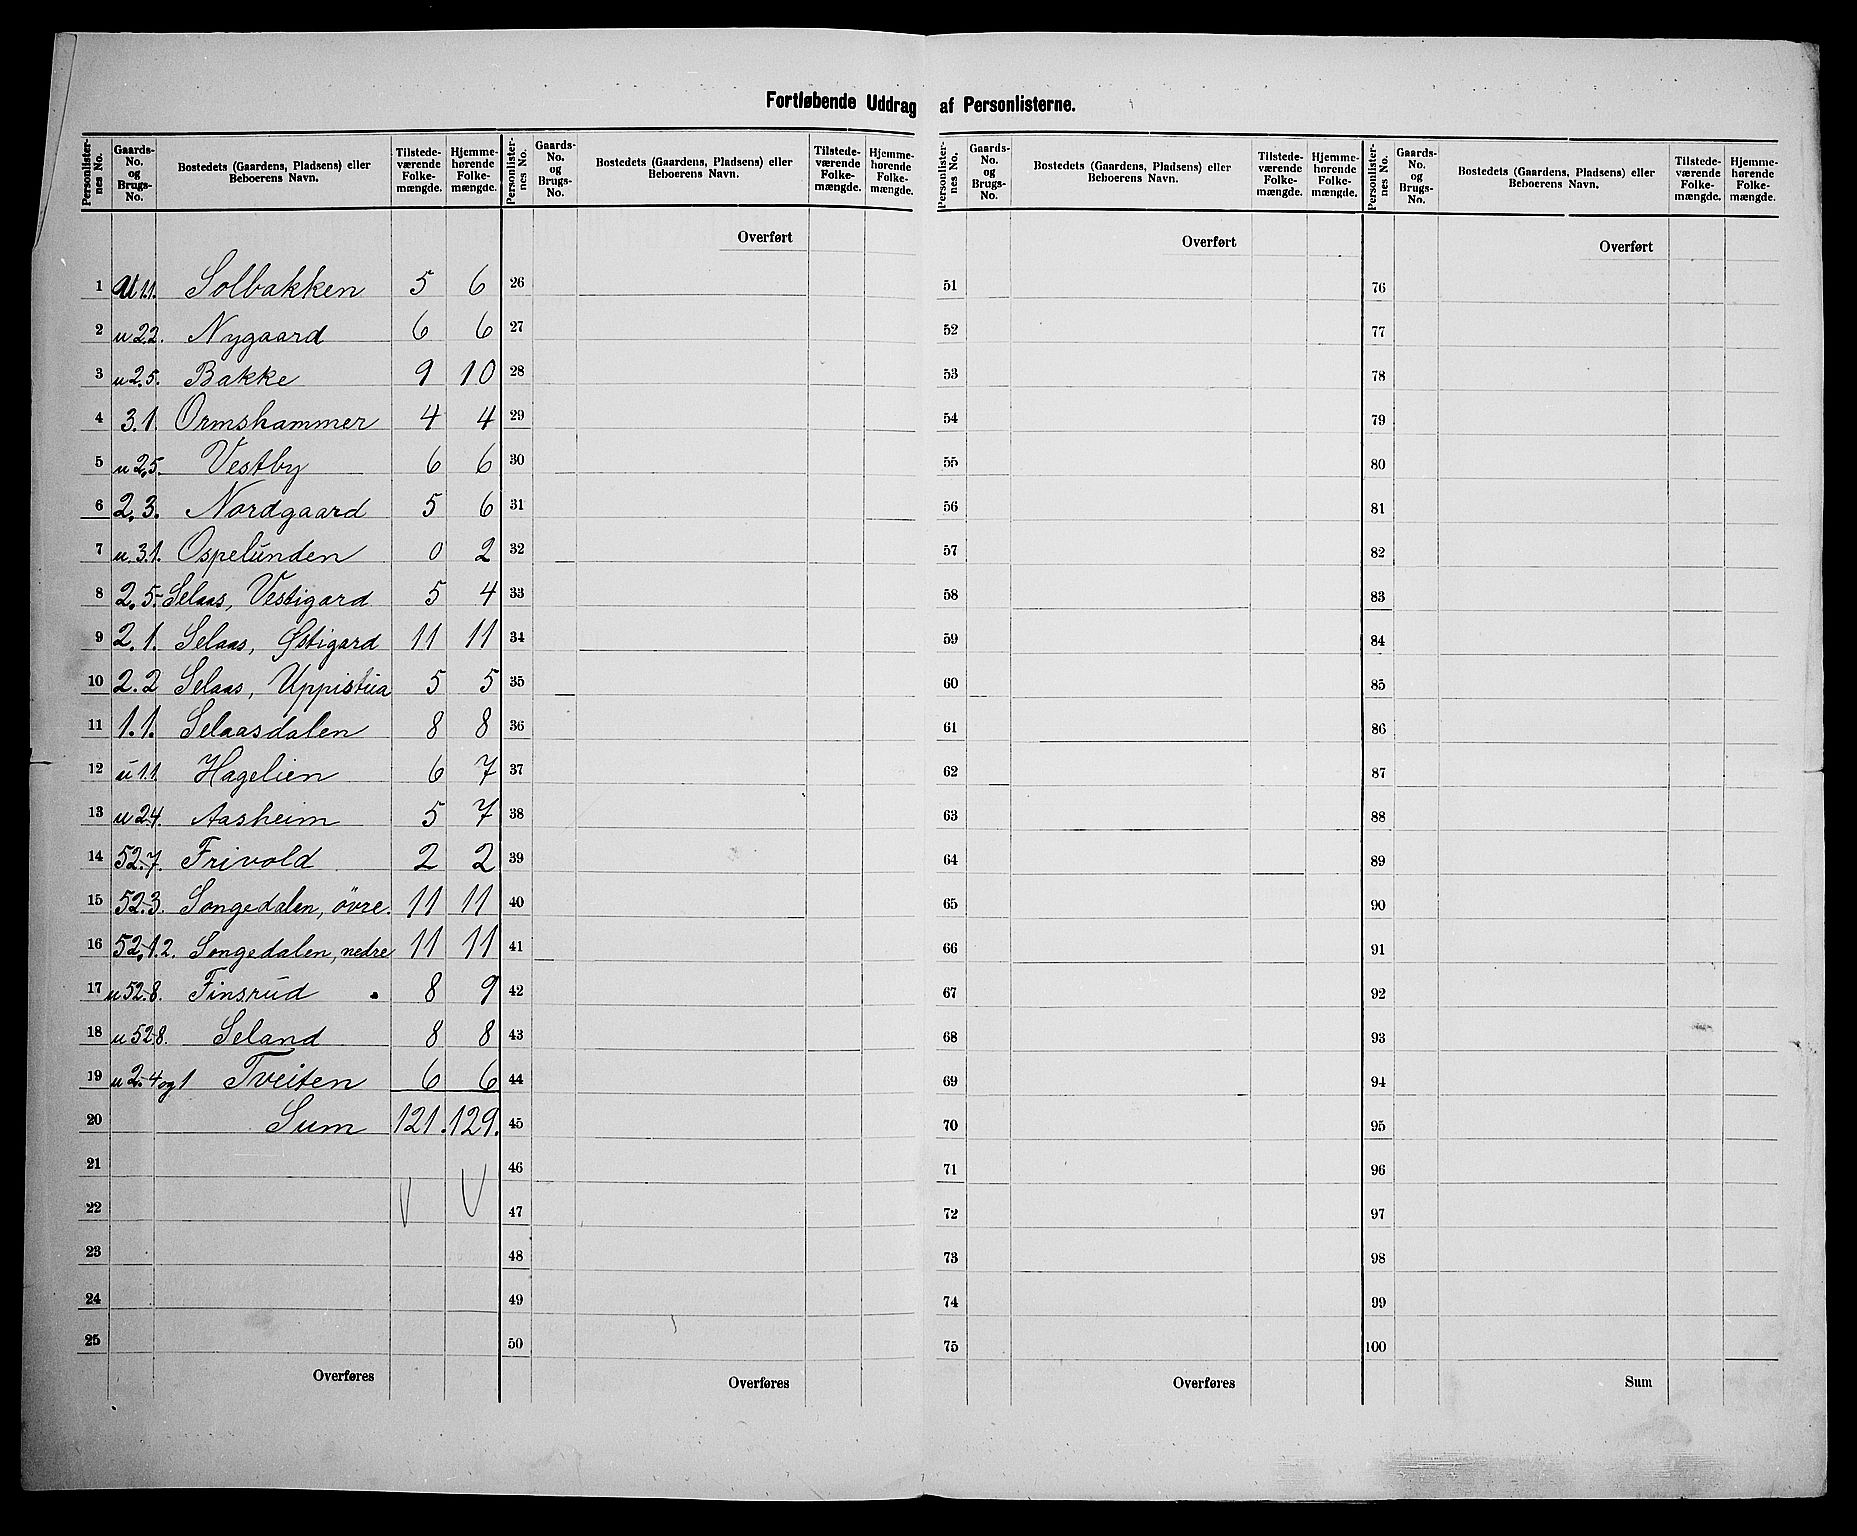 Fortløbende Uddrag af Personlisterne.
Personlisternes No. Gaards-No. og Brugs-No. Bostedets (Gaardens, Pladsen) eller Beboerens Navn. Tilstedeværende Folkemængde. Hjemmehørende Folkemængde.
Personlisternes No. Gaards-No. og Brugs-No. Bostedets (Gaardens, Pladsens) eller Beboerens Navn. Tilstedeværende Folkemængde. Hjemmehørende Folkemængde.
Personlisternes No. Gaards-No. og Brugs-No. Bostedets (Gaardens, Pladsens) eller Beboerens Navn. Tilstedeværende Folkemængde. Hjemmehørende Folkemængde.
Personlisternes No. Gaards-No. og Brugs-No. Bostedets (Gaardens, Pladsens) eller Beboerens Navn. Tilstedeværende Folkemængde. Hjemmehørende Folkemængde.
Overført Overført Overført
1 u 1.1. Solbakken 5 6 26 51 76
2 u 2.2. Nygaard 6 6 27 52 77
3 u 2.5. Bakke 9 10 28 53 78
4 3.1. Ormshammer 4 4 29 54 79
5 u 2.5. Vestby 6 6 30 55 80
6 2.3. Nordgaard 5 6 31 56 81
7 u. 3.1. Ospelunden 0 2 32 57 82
8 2.5. Selaas, Vestigard 5 4 33 58 83
9 2.1. Selaas, Østigard 11 11 34 59 84
10 2.2 Selaas, Uppistua 5 5 35 60 85
11 1.1. Selaasdalen 8 8 36 61 86
12 u 1.1. Hagelien 6 7 37 62 87
13 u 2.4. Aasheim 5 7 38 63 88
14 52.7. Frivold 2 2 39 64 89
15 52.3. Songedalen, övre. 11 11 40 65 90
16 52.1.2. Songedalen, nedre 11 11 41 66 91
17 u 52.8. Finsrud 8 9 42 67 92
18 u 52.8. Seland 8 8 43 68 93
19 u 2.4 og 1 Tveiten 6 6 44 69 94
20 Sum 121. 129. 45 70 95
21 46 71 96
22 47 72 97
23 48 73 98
24 49 74 99
25 50 75 100
Overføres Overføres Overføres Sum